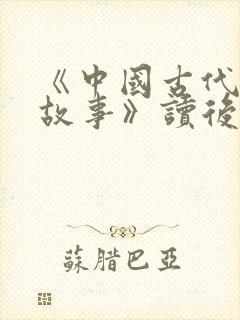 《中國古代
故事》讀後
蘇腊巴亞